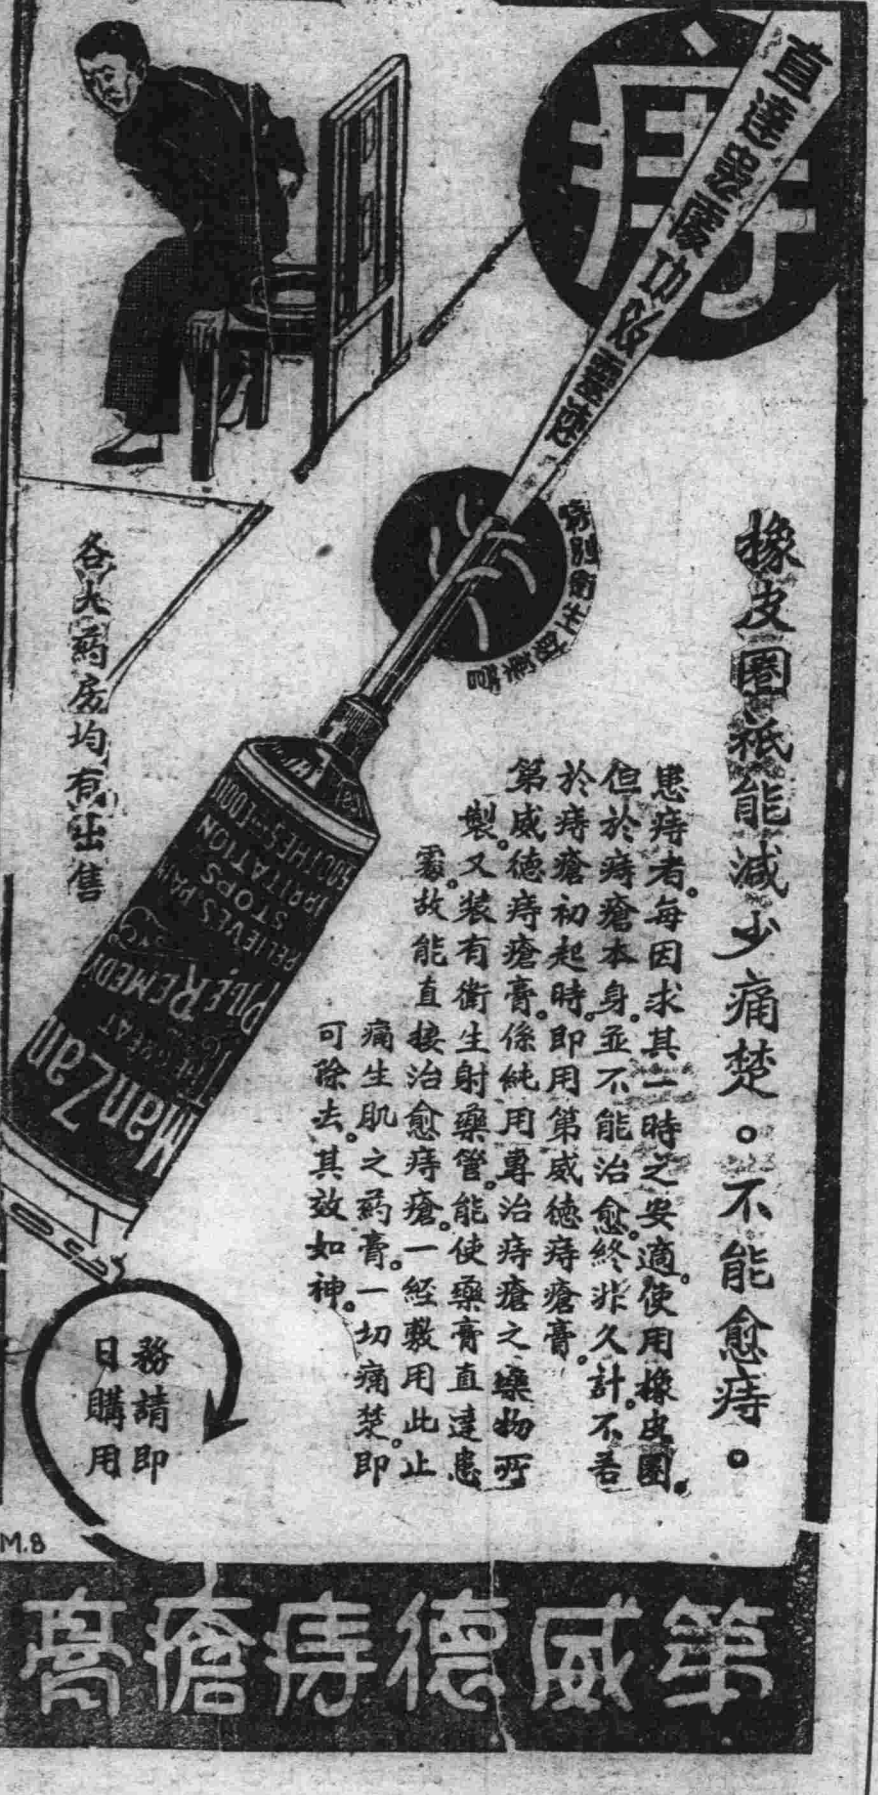 痔
直達患處功效靈捷
特別衛生射藥管
橡皮圈祇能減少痛楚。不能愈痔。
患痔者。每因求其一時之安適。使用橡皮圈。
但於痔瘡本身。並不能治愈。終非久計。不若
於痔瘡初起時。即用第威德痔瘡膏。
第威德痔瘡膏。係純用專治痔瘡之藥物所
製。又裝有衛生射藥管。能使藥膏直達患
處。故能直接治愈痔瘡。一経敷用此止
痛生肌之药膏。一切痛楚。即
可除去。其效如神。
各大药房均有出售
ManZan
THE GREAT
PILE REMEDY
RELIEVES PAIN
STOPS
IRRITATION
SOOTHES-COOLS
務請即
日購用
M.8
第威德痔瘡膏